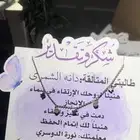 شكر وتقدير
طالبتي المتألقة: دانه الشمري
هنيئاً لروحك الإرتقاء في سماء
الإنجاز
دمت في تميز وارتقاء
هنيئاً لك إتمام الحفظ
معلمتك: نورة الدوسري